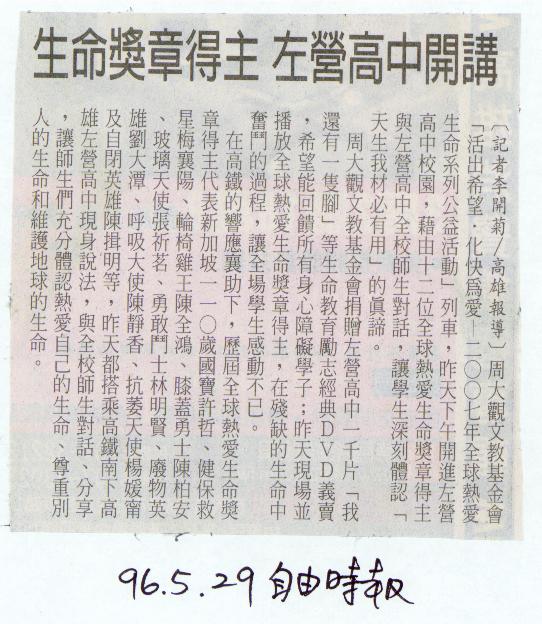 生命獎章得主 左營高中開講
〔記者李開菊／高雄報導〕周大觀文教基金會
「活出希望．化快為愛－二〇〇七年全球熱愛
生命系列公益活動」列車，昨天下午開進左營
高中校園，藉由十二位全球熱愛生命獎章得主
與左營高中全校師生對話，讓學生深刻體認「
天生我材必有用」的真諦。
周大觀文教基金會捐贈左營高中一千片「我
還有一隻腳」等生命教育勵志經典DVD義賣
，希望能回饋所有身心障礙學子；昨天現場並
播放全球熱愛生命獎章得主，在殘缺的生命中
奮鬥的過程，讓全場學生感動不已。
在高鐵的響應襄助下，歷屆全球熱愛生命獎
章得主代表新加坡一一〇歲國寶許哲、健保救
星梅襄陽、輪椅雞王陳全鴻、膝蓋勇士陳柏安
、玻璃天使張祈茗、勇敢鬥士林明賢、廢物英
雄劉大潭、呼吸大使陳靜香、抗萎天使楊媛甯
及自閉英雄陳揖明等，昨天都搭乘高鐵南下高
雄左營高中現身說法，與全校師生對話、分享
，讓師生們充分體認熱愛自己的生命、尊重別
人的生命和維護地球的生命。
96.5.29 自由時報